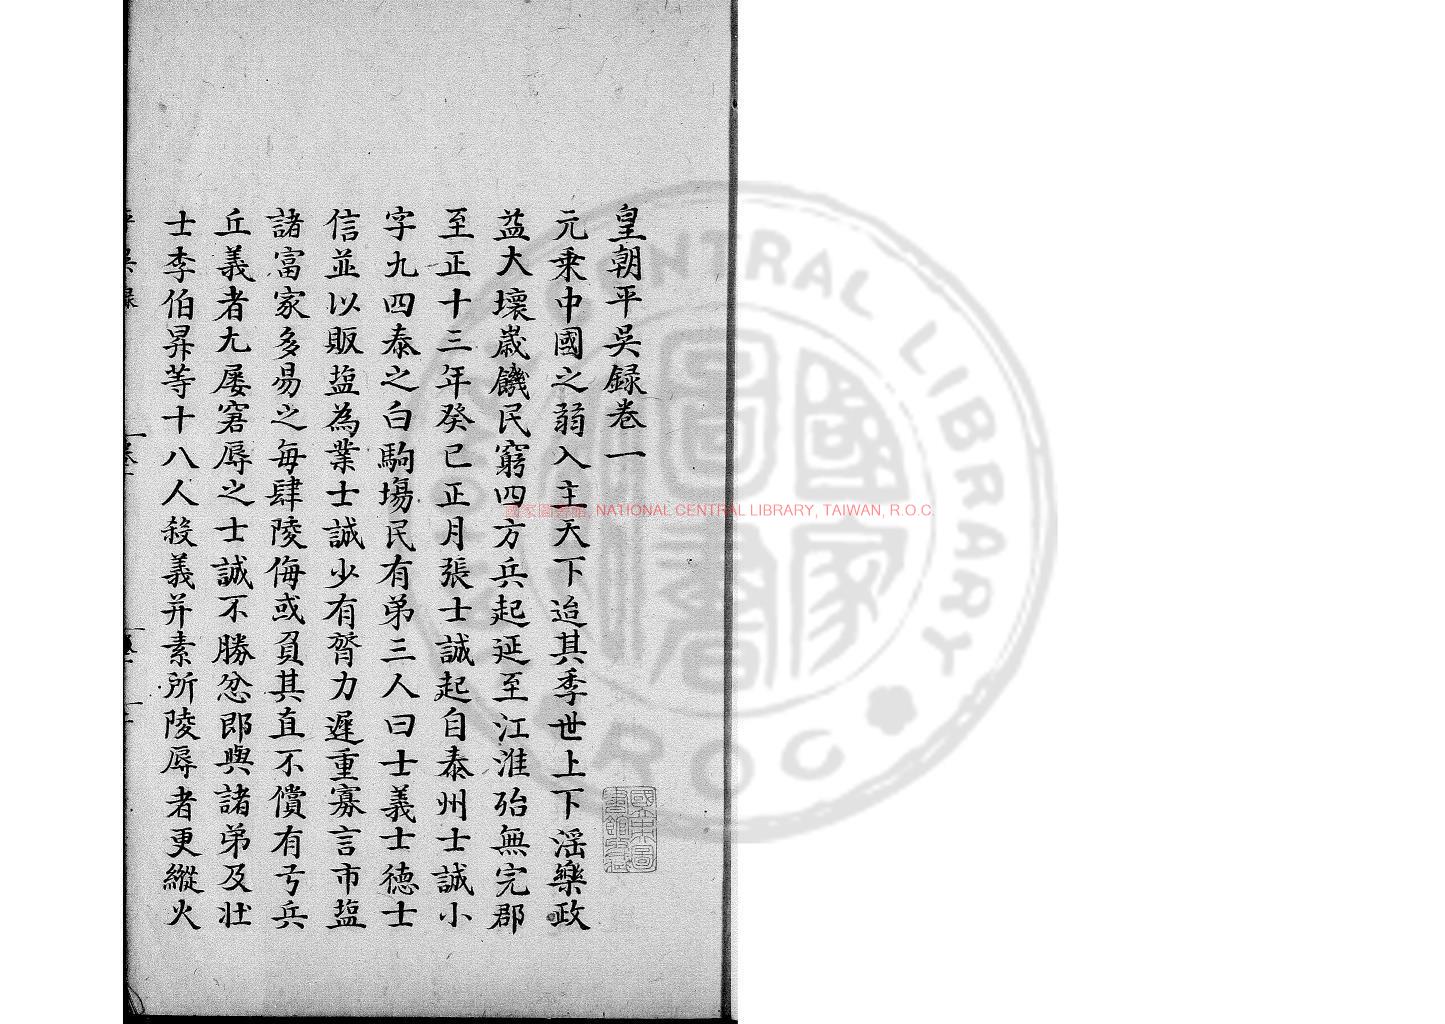 皇朝平吳録卷一
元乗中國之弱入主天下迨其季世上下滛樂政
益大壞歲饑民窮四方兵起延至江淮殆無完郡
至正十三年癸巳正月張士誠起自泰州士誠小
字九四泰之白駒塲民有弟三人曰士義士德士
信並以販塩為業士誠少有膂力遲重寡言市塩
諸富家多易之毎肆陵侮或負其直不償有弓兵
丘義者尢屡窘辱之士誠不勝忿即與諸弟及壮
士李伯昇等十八人殺義并素所陵辱者更縱火
國家圖書館, NATIONAL CENTRAL LIBRARY, TAIWAN, R.O.C